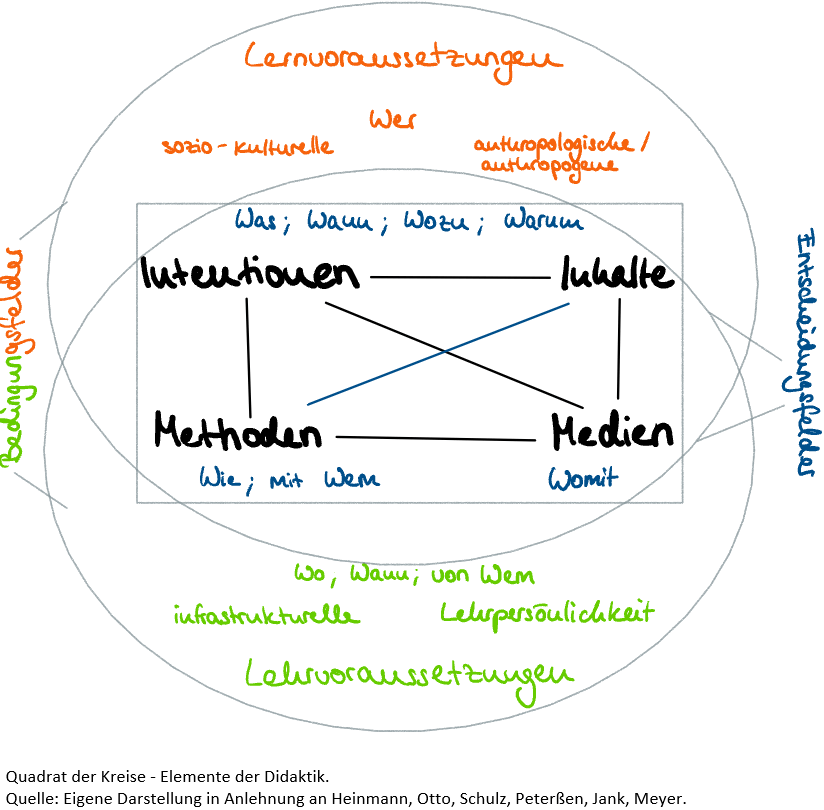 Lernvoraussetzungen
Wer
sozio-kulturelle
anthropologische/
anthropogene
Was; Wann; Wozu; Warum
Intentionen
Inhalte
Bedingungsfelder
Entscheidungsfelder
Methoden
Medien
Wie; mit Wem
Womit
Wo, Wann; von Wem
infrastrukturelle
Lehrpersönlichkeit
Lehrvoraussetzungen
Quadrat der Kreise - Elemente der Didaktik.
Quelle: Eigene Darstellung in Anlehnung an Heinmann, Otto, Schulz, Peterßen, Jank, Meyer.